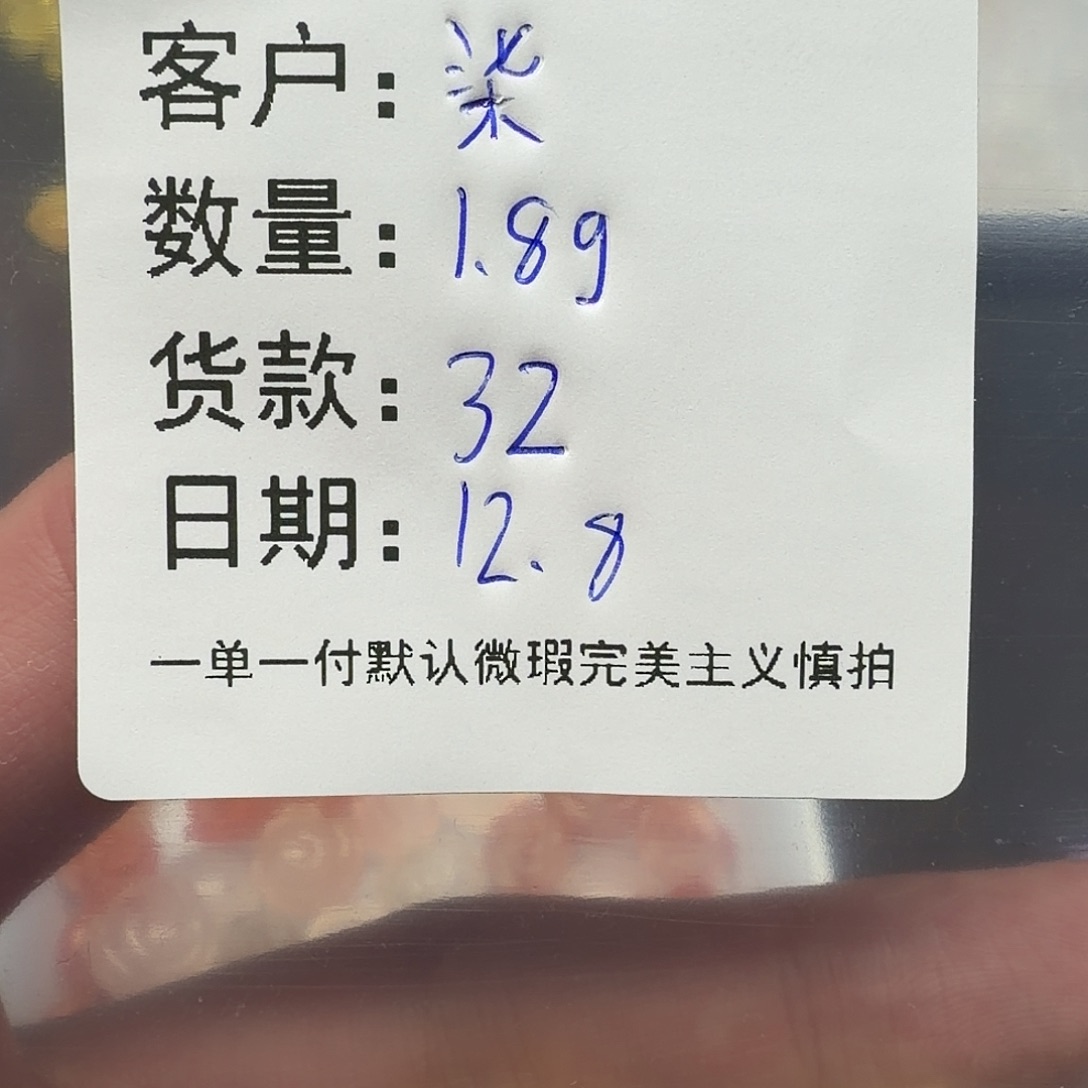 客户：柒
数量：1.8g
货款：32
日期：12.8
一单一付默认微瑕完美主义慎拍